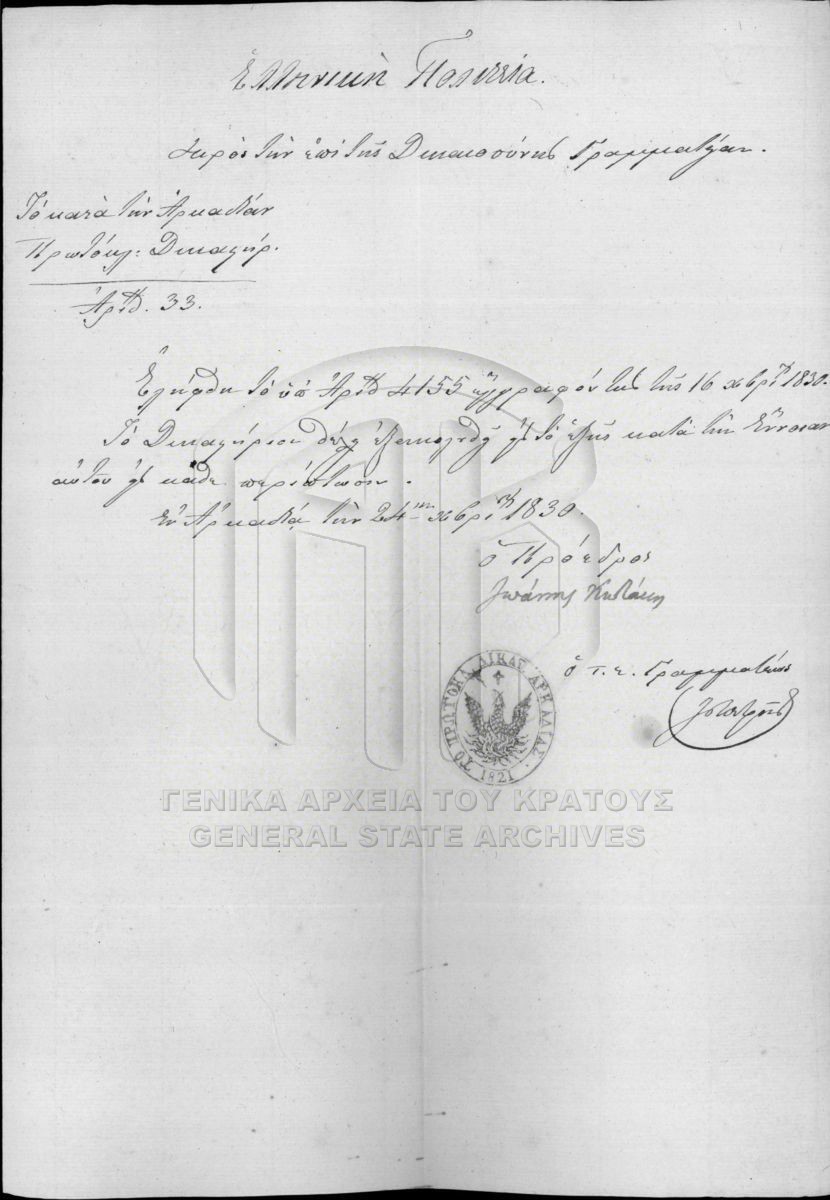 Ἑλληνικὴ Πολιτεία.
πρὸς τὴν ἐπὶ τῆς Δικαιοσύνης Γραμματείαν.
Τὸ κατὰ τὴν Ἀρκαδίαν
Πρωτόκλ: Δικαστήρ.
Ἀριθ. 33.
Ἐλήφθη τὸ ὑπ Ἀριθ 4155 ἔγγραφόν της τῆς 16 χβρίου 1830.
Τὸ Δικαστήριον θέλει ἐξακολουθεῖ εἰς τὸ ἑξῆς κατὰ τὴν Ἔννοιαν
αὐτοῦ εἰς κάθε περίπτωσιν.
Ἐν Ἀρκαδίᾳ τὴν 24 χβρίου 1830.
ὁ Πρόεδρος
Ἰωάννης
ὁ π. ε. Γραμματεὺς
ΤΟ ΠΡΩΤΟΚΛ. ΔΙΚΑΣ. ΑΡΚΑΔΙΑΣ.
1821
ΓΕΝΙΚΑ ΑΡΧΕΙΑ ΤΟΥ ΚΡΑΤΟΥΣ
GENERAL STATE ARCHIVES